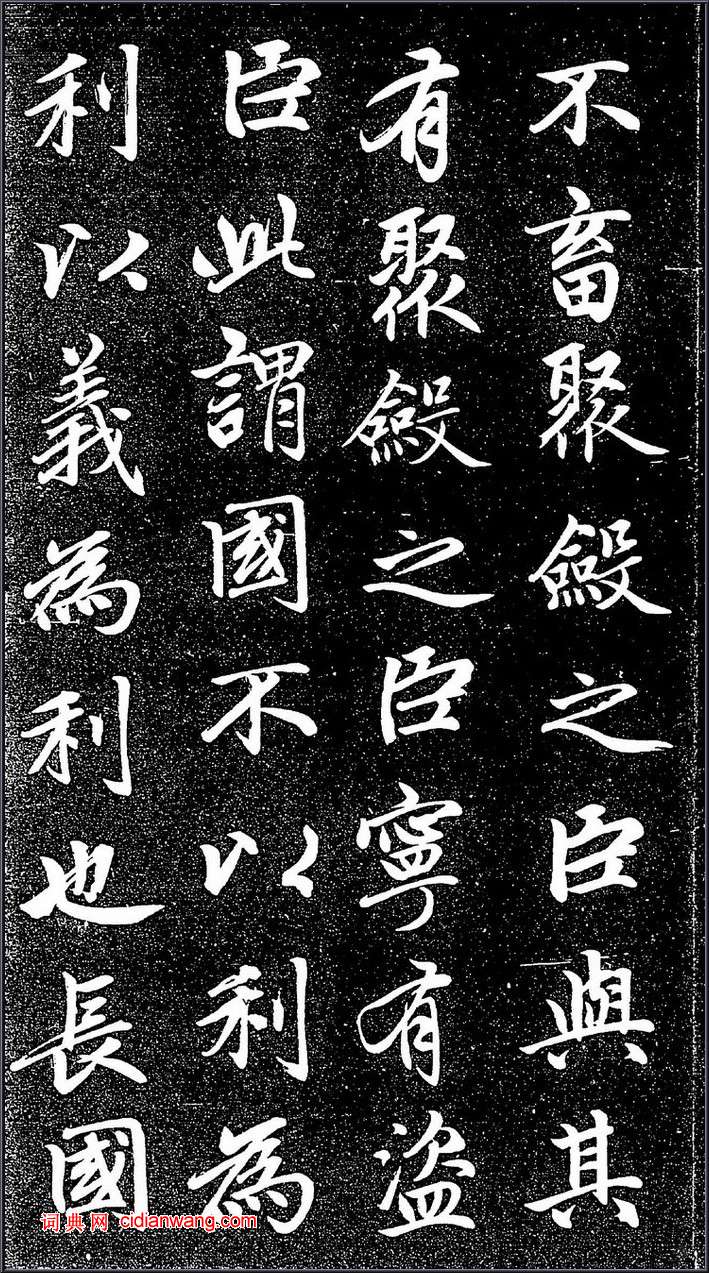 不畜聚斂之臣與其
有聚斂之臣寧有盜
臣此謂國不以利為
利以義為利也長國
词典网 cidianwang.com